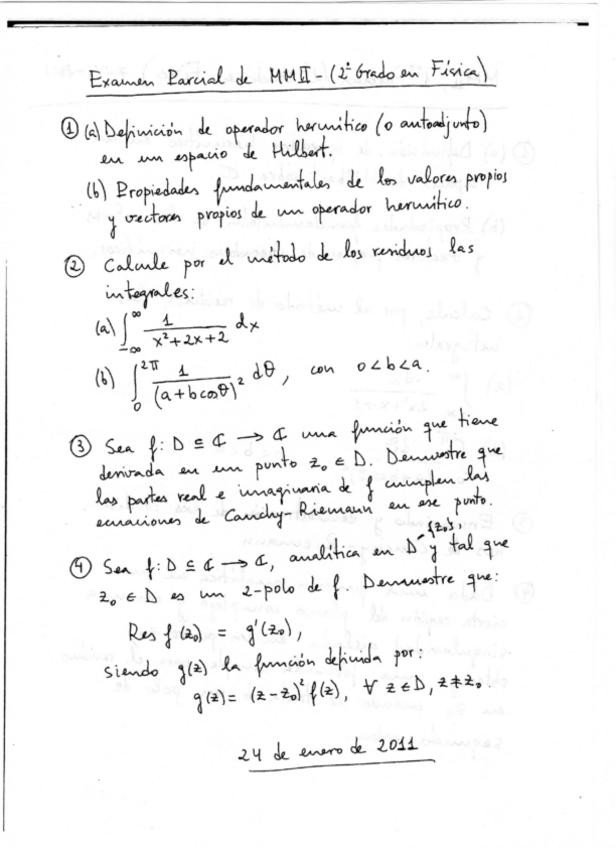 Examen Parcial de MMII - (2º Grado en Física)
① (a) Definición de operador hermítico (o autoadjunto)
en un espacio de Hilbert.
(b) Propiedades fundamentales de los valores propios
y vectores propios de un operador hermítico.
② Calcule por el método de los residuos las
integrales:
(a) ∫_{-∞}^{∞} 1/(x²+2x+2) dx
(b) ∫_0^{2π} 1/(a+b cosθ)² dθ, con 0<b<a.
③ Sea f: D ⊆ ℂ → ℂ una función que tiene
derivada en un punto z₀ ∈ D. Demuestre que
las partes real e imaginaria de f cumplen las
ecuaciones de Cauchy-Riemann en ese punto.
④ Sea f: D ⊆ ℂ → ℂ, analítica en D-{z₀}, y tal que
z₀ ∈ D es un 2-polo de f. Demuestre que:
Res f(z₀) = g'(z₀),
siendo g(z) la función definida por:
g(z) = (z-z₀)² f(z), ∀ z ∈ D, z≠z₀.
24 de enero de 2011